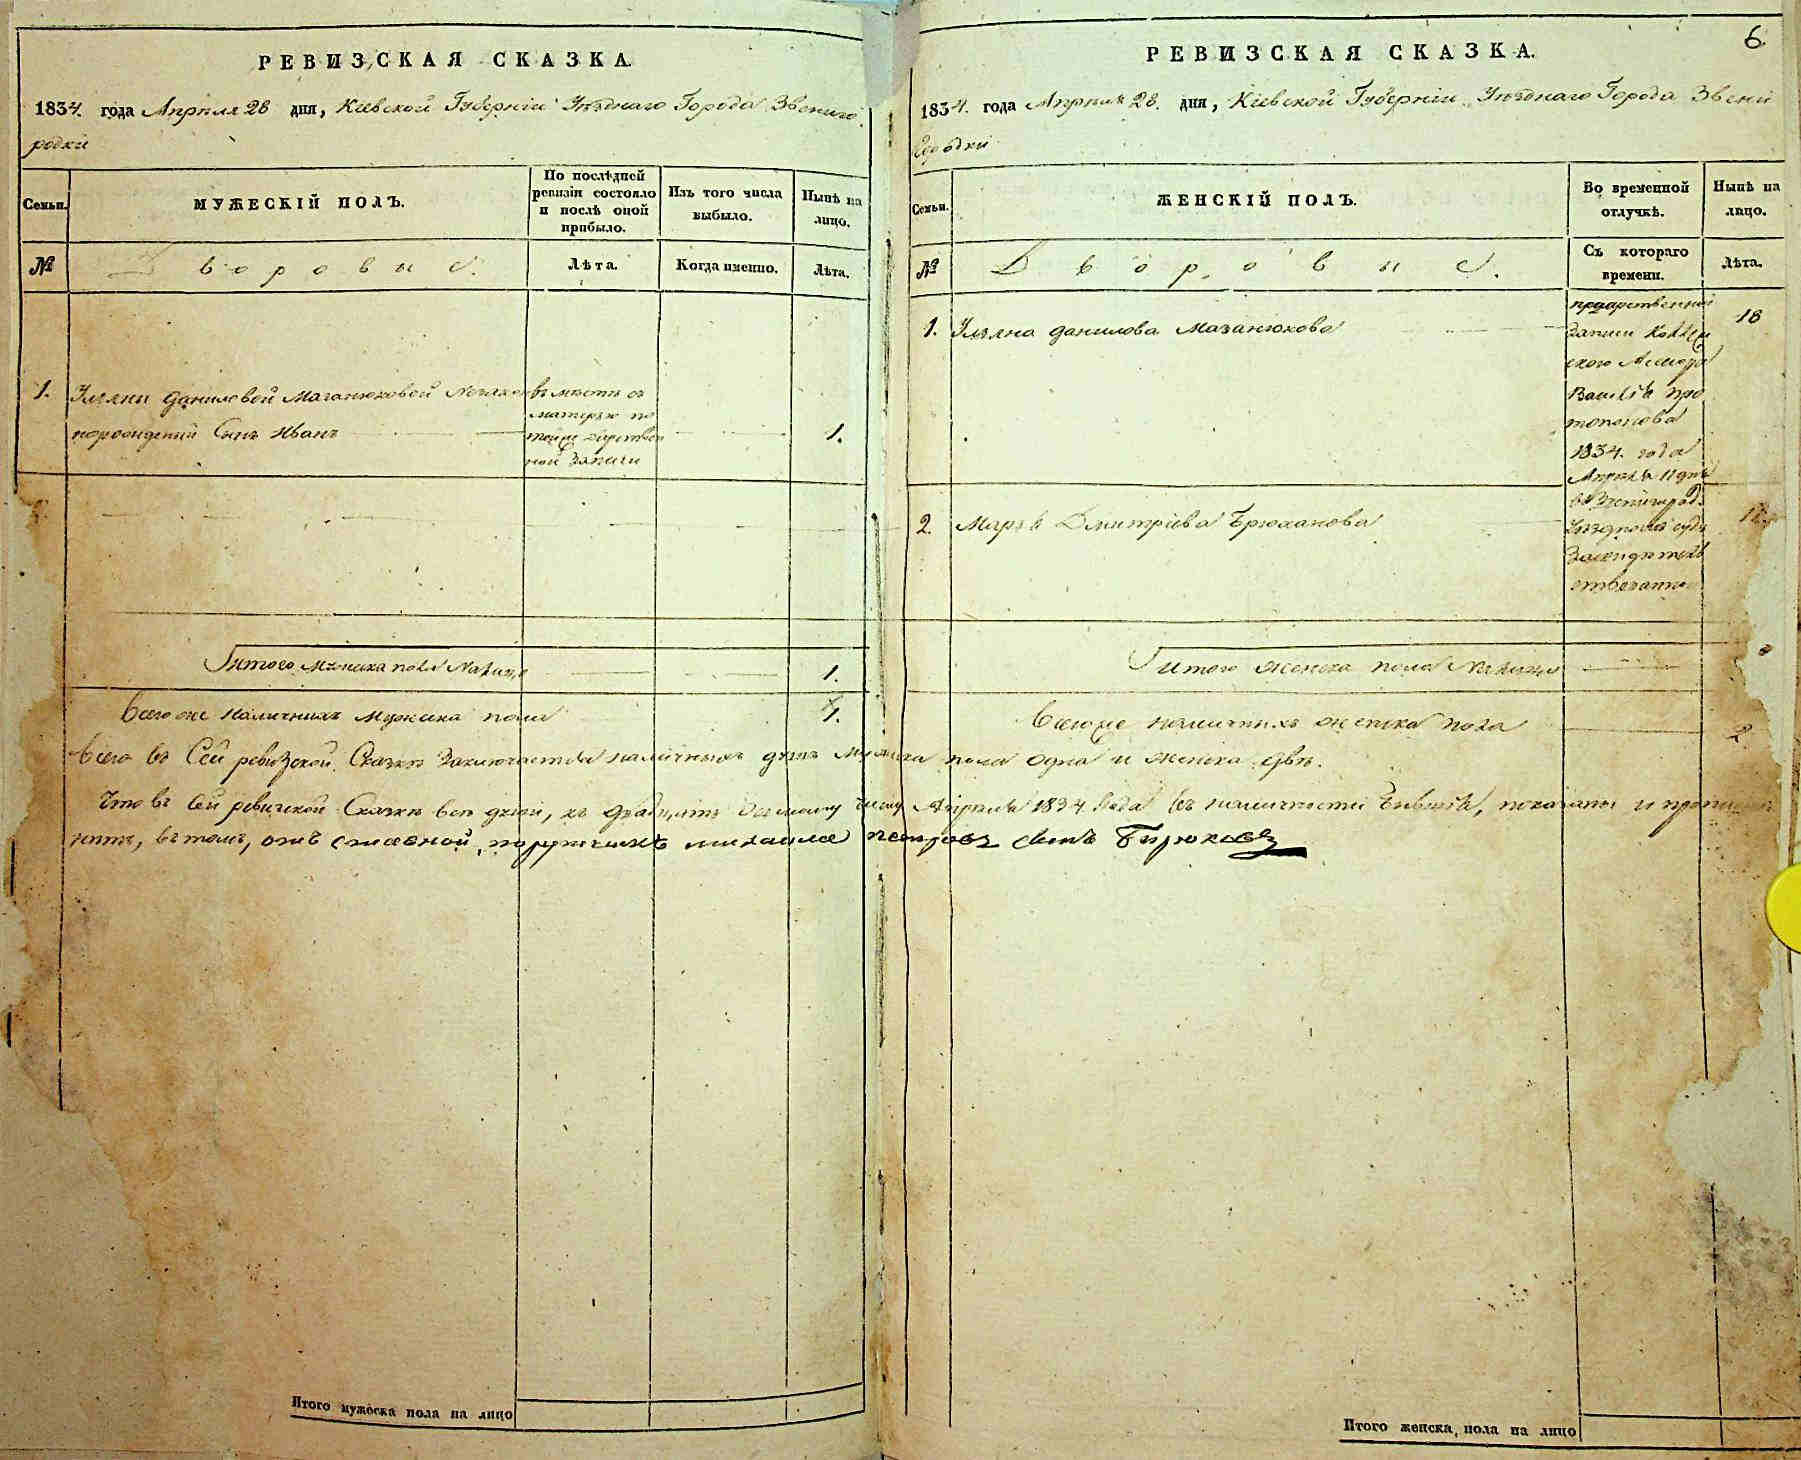 РЕВИЗСКАЯ СКАЗКА.
1834. года Апреля 28 дня, Кіевской Губерніи Уѣзднаго Города Звениго
родки
Семьи.
МУЖЕСКІЙ ПОЛЪ.
По послѣдней
ревизіи состояло
и послѣ оной
прибыло.
Изъ того числа
выбыло.
Нынѣ на
лицо.
№
Дворовые.
Лѣта.
Когда именно.
Лѣта.
1. Ульяны Даниловой Мазанюковой
порожденній Сынъ Иванъ
вмѣсть съ
матерью по
дарствен
ной записи
1.
Итого Мужска пола Налицо 1.
Всего же Наличныхъ Мужска пола 1.
6
РЕВИЗСКАЯ СКАЗКА.
1834. года Апреля 28. дня, Кіевской Губерніи Уѣзднаго Города Звени
городки
Семьи.
ЖЕНСКІЙ ПОЛЪ.
Во временной
отлучкѣ.
Нынѣ на
лицо.
№
Дворовые.
Съ котораго
времени.
Лѣта.
1. Ульяна Данилова Мазанюкова 18
записи
Василія Про
топопова
1834. года
Апреля 11 дня
2. Марья Дмитріева Брюханова
Итого Женска пола Налицо
Всего же наличныхъ женска пола 2
Всего въ Сей ревизской Сказкѣ Заключается наличныхъ душъ Мужска пола одна и женска двѣ.
Что въ Сей ревизской Сказкѣ всѣ души, къ двадцать Осьмому числу Апреля 1834 Года въ наличности бывшія, показаны и
нѣтъ, въ томъ, отставной порутчикъ михаила петровъ сынъ Бирюковъ
Итого мужеска пола на лицо
Итого женска пола на лицо